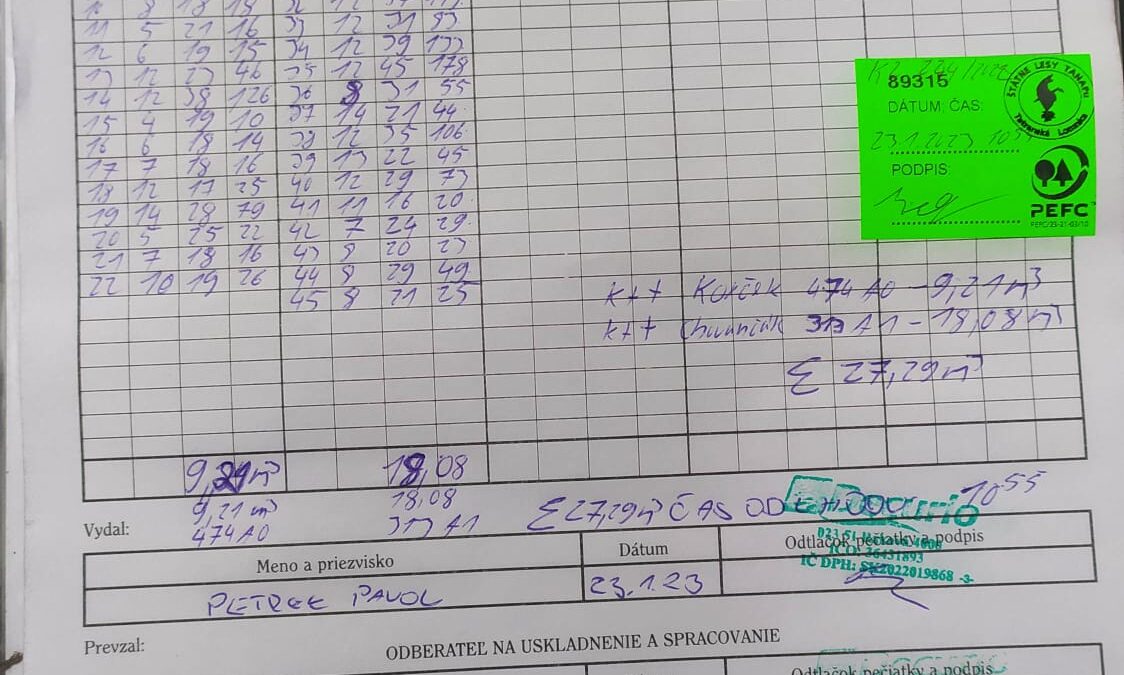 11 5 21 16 33 12 31 83
12 6 19 15 34 12 39 133
13 12 23 46 35 12 45 178
14 12 38 126 36 8 31 55
15 4 19 10 37 14 21 44
16 6 18 14 38 12 35 106
17 7 18 16 39 13 22 45
18 12 17 25 40 12 29 73
19 14 28 79 41 11 16 20
20 5 25 22 42 7 24 29
21 7 18 16 43 8 20 23
22 10 19 26 44 8 29 49
45 8 21 25
89315
DÁTUM, ČAS:
23.1.2023 10 55
PODPIS:
ŠTÁTNE LESY TANAPu
Tatranská Lomnica
PEFC
PEFC/23-21-03/10
474 A0 - 9,21 m³
313 A1 - 18,08 m³
Σ 27,29 m³
9,21 m³ 18,08
9,21 m³ 18,08
474 A0 313 A1
Σ 27,29 m³ ČAS ODCHODU 10 55
Vydal:
Meno a priezvisko Dátum Odtlačok pečiatky a podpis
IČO: 36431893
IČ DPH: SK2022019868 -3-
PAVOL 23.1.23
Prevzal:
ODBERATEĽ NA USKLADNENIE A SPRACOVANIE
Odtlačok pečiatky a podpis